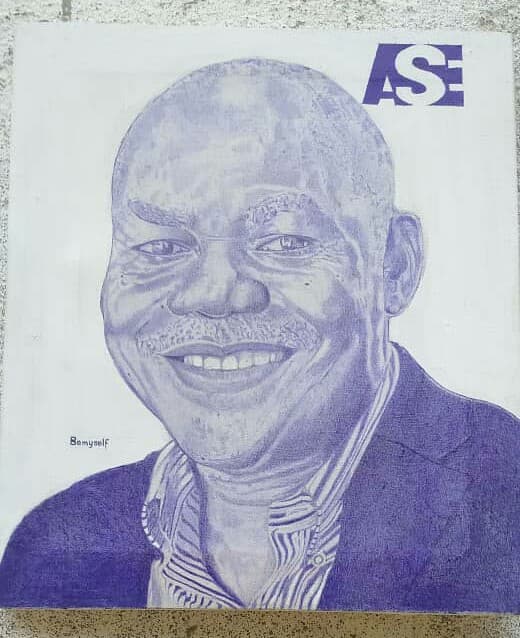 ASE
Bemyself